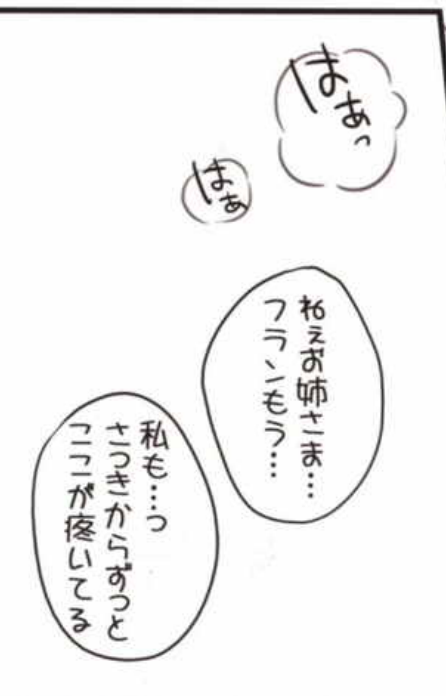 はぁっ
はぁ
ねぇお姉さま…
フランもう…
私も…っ
さっきからずっと
ここが疼いてる